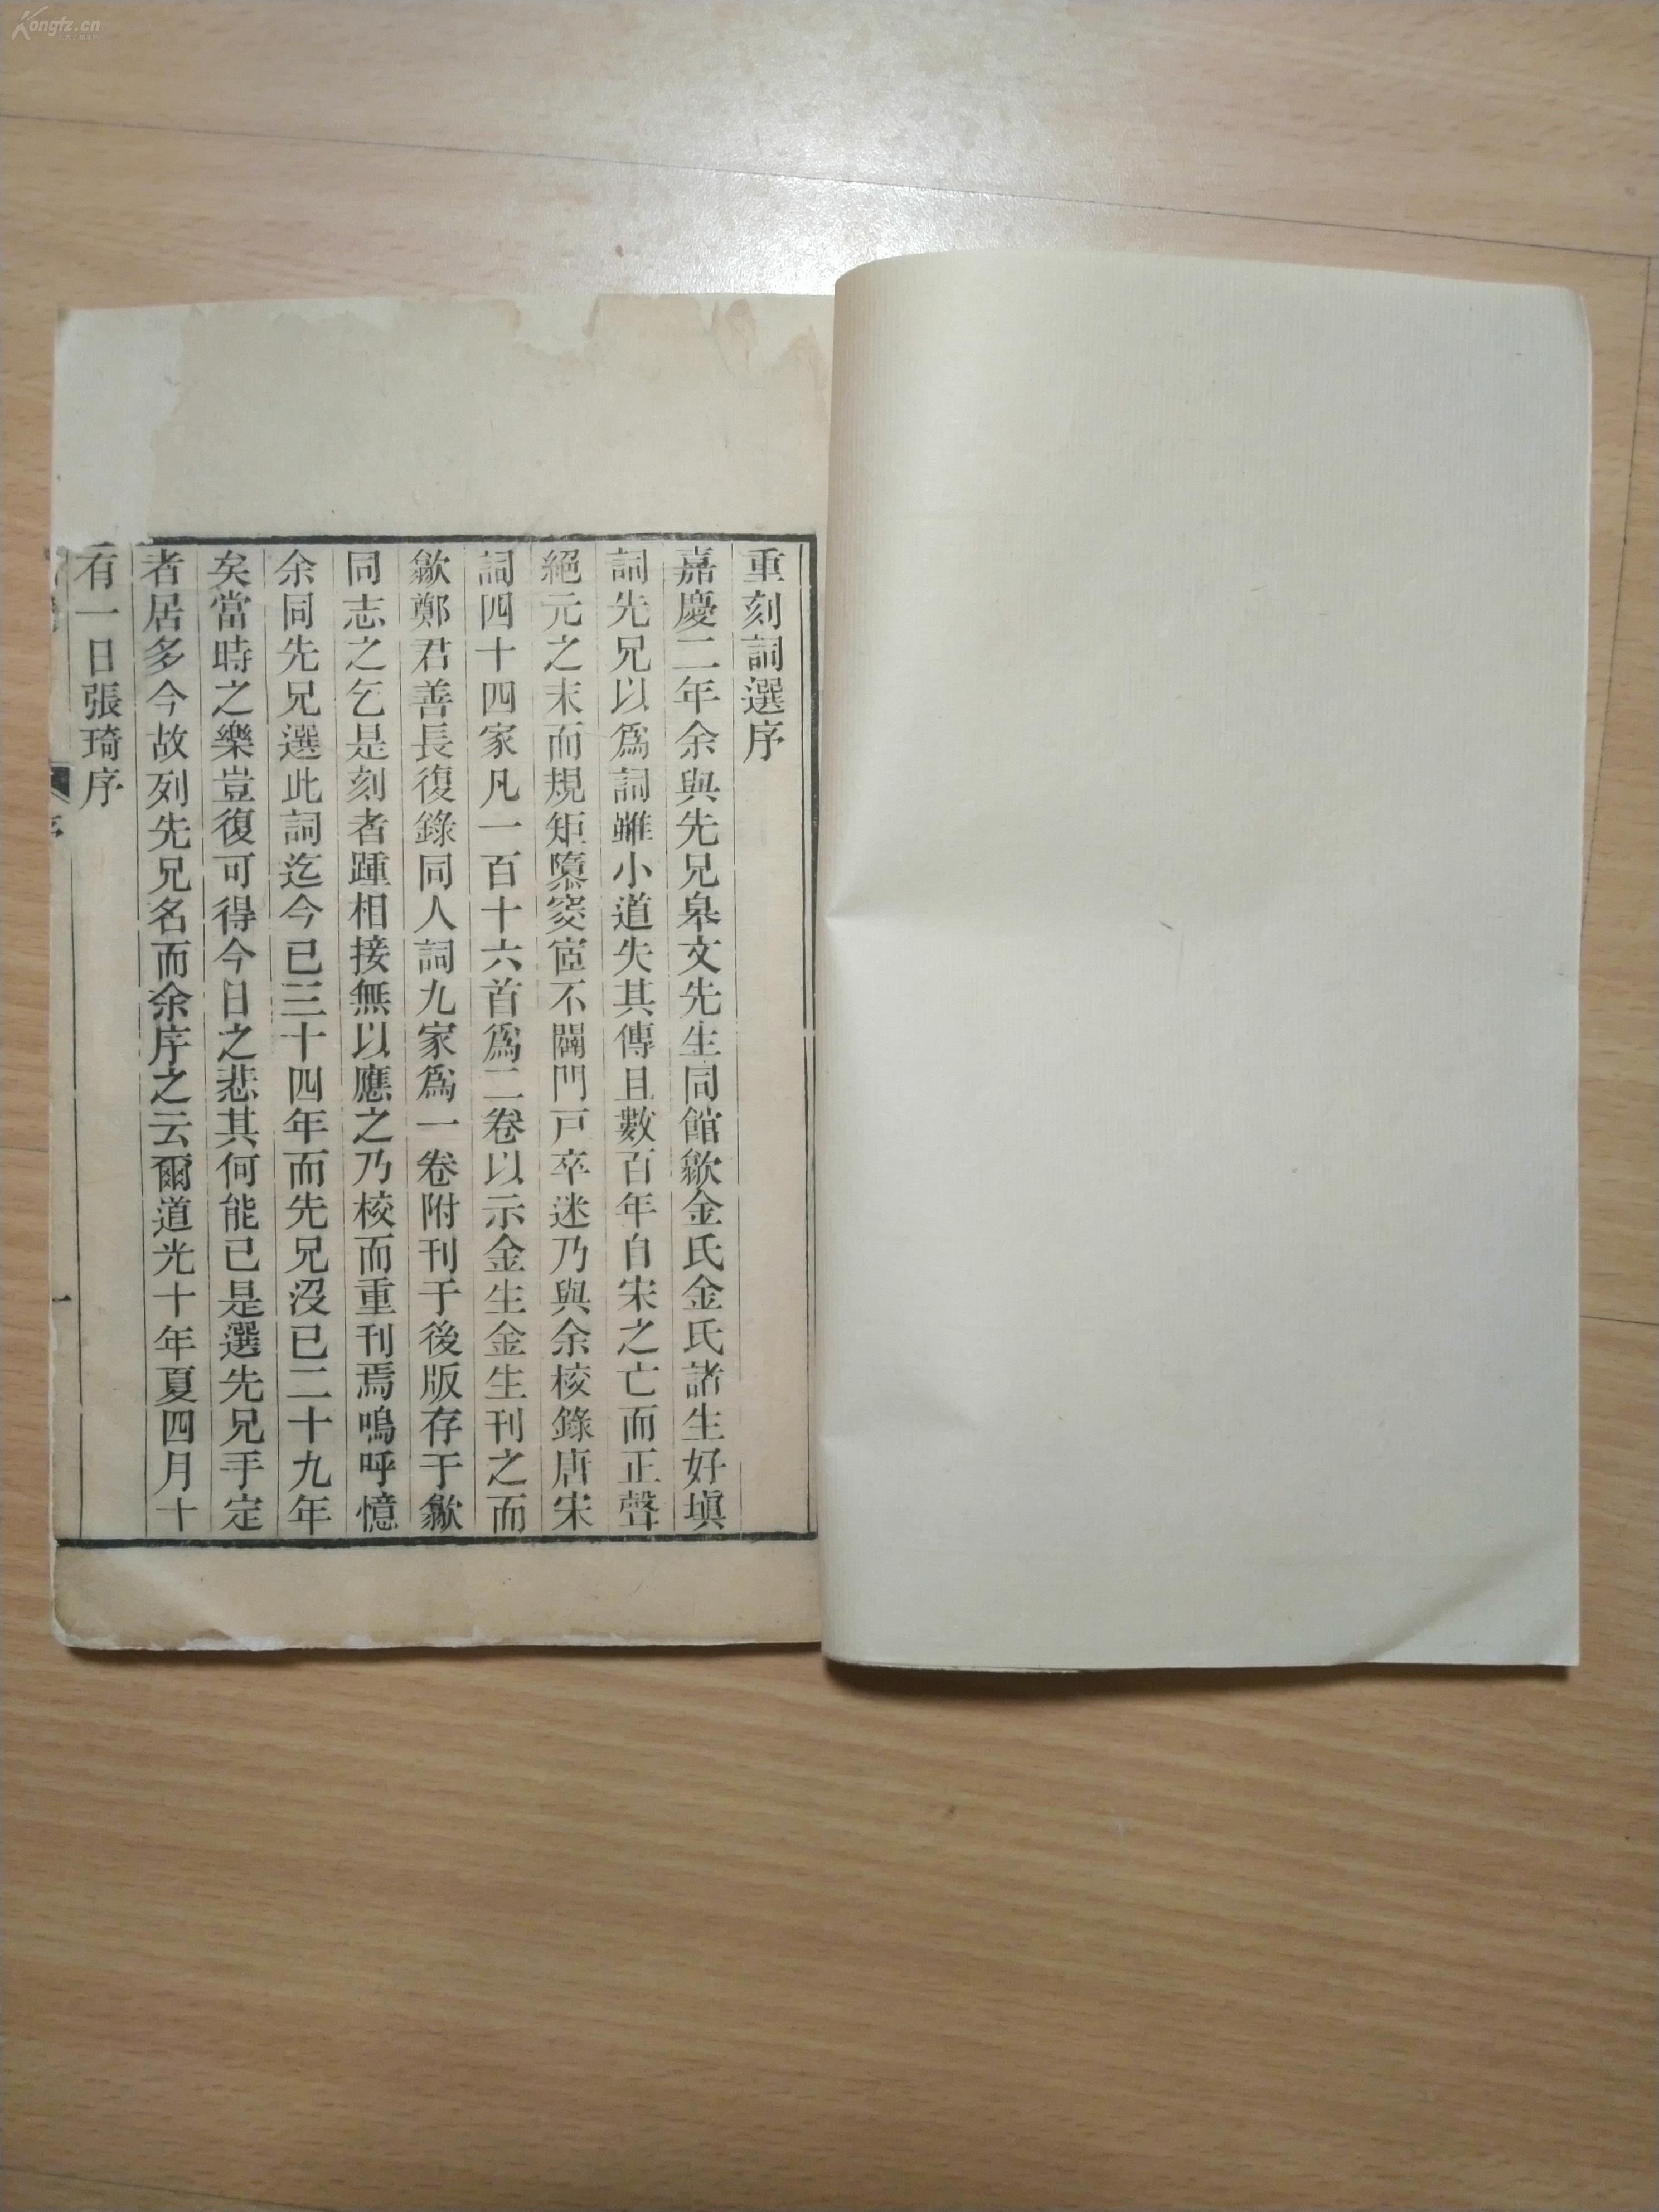 Kongfz.cn
重刻詞選序
嘉慶二年余與先兄臯文先生同館歙金氏金氏諸生好塡
詞先兄以爲詞雖小道失其傳且數百年自宋之亡而正聲
絕元之末而規矩隳窔宧不闢門戸卒迷乃與余校錄唐宋
詞四十四家凡一百十六首爲二卷以示金生金生刊之而
歙鄭君善長復錄同人詞九家爲一卷附刊于後版存于歙
同志之乞是刻者踵相接無以應之乃校而重刊焉嗚呼憶
余同先兄選此詞迄今已三十四年而先兄沒已二十九年
矣當時之樂豈復可得今日之悲其何能已是選先兄手定
者居多今故列先兄名而余序之云爾道光十年夏四月十
有一日張琦序
一